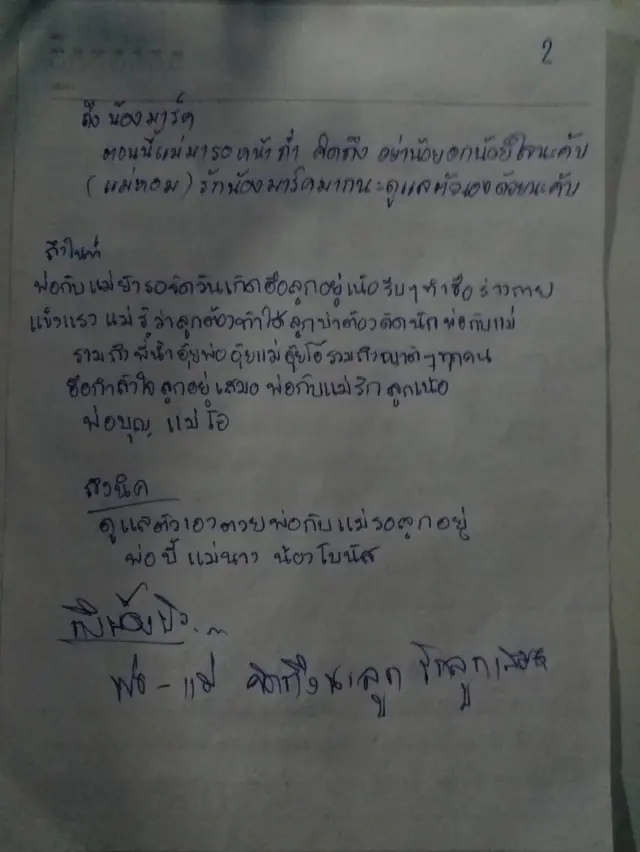 2
ถึง น้องมาร์ค
ตอนนี้แม่มารอหน้าถ้ำ คิดถึง อย่าน้อยอกน้อยใจนะคับ
(แม่หอม) รักน้องมาร์คมากนะดูแลตัวเองด้วยนะคับ
ถึงไนท์
พ่อกับแม่ยังรอจัดวันเกิดฮื้อลูกอยู่เน้อ รีบๆ ทำฮื้อ ร่างกาย
แข็งแรง แม่รู้ว่าลูกต้องทำได้ ลูกบ่าต้องคิดนัก พ่อกับแม่
รวมถึง พี่น้ำ อุ้ยพ่อ อุ้ยแม่ อุ้ยโอ้ รวมถึงญาติๆ ทุกคน
ฮื้อกำลังใจลูกอยู่เสมอ พ่อกับแม่รักลูกเน้อ
พ่อบุญ แม่โอ
ถึงนิค
ดูแลตัวเองดวยพ่อกับแม่รอลูกอยู่
พ่อบี้ แม่นาว น้องโบนัส
ถึงน้องบิว...
พ่อ - แม่ คิดถึงนะลูก รักลูกเสมอ